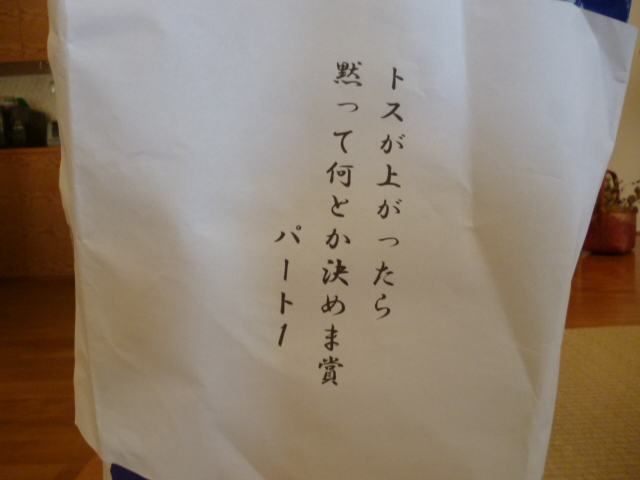 トスが上がったら
黙って何とか決めま賞
パート1